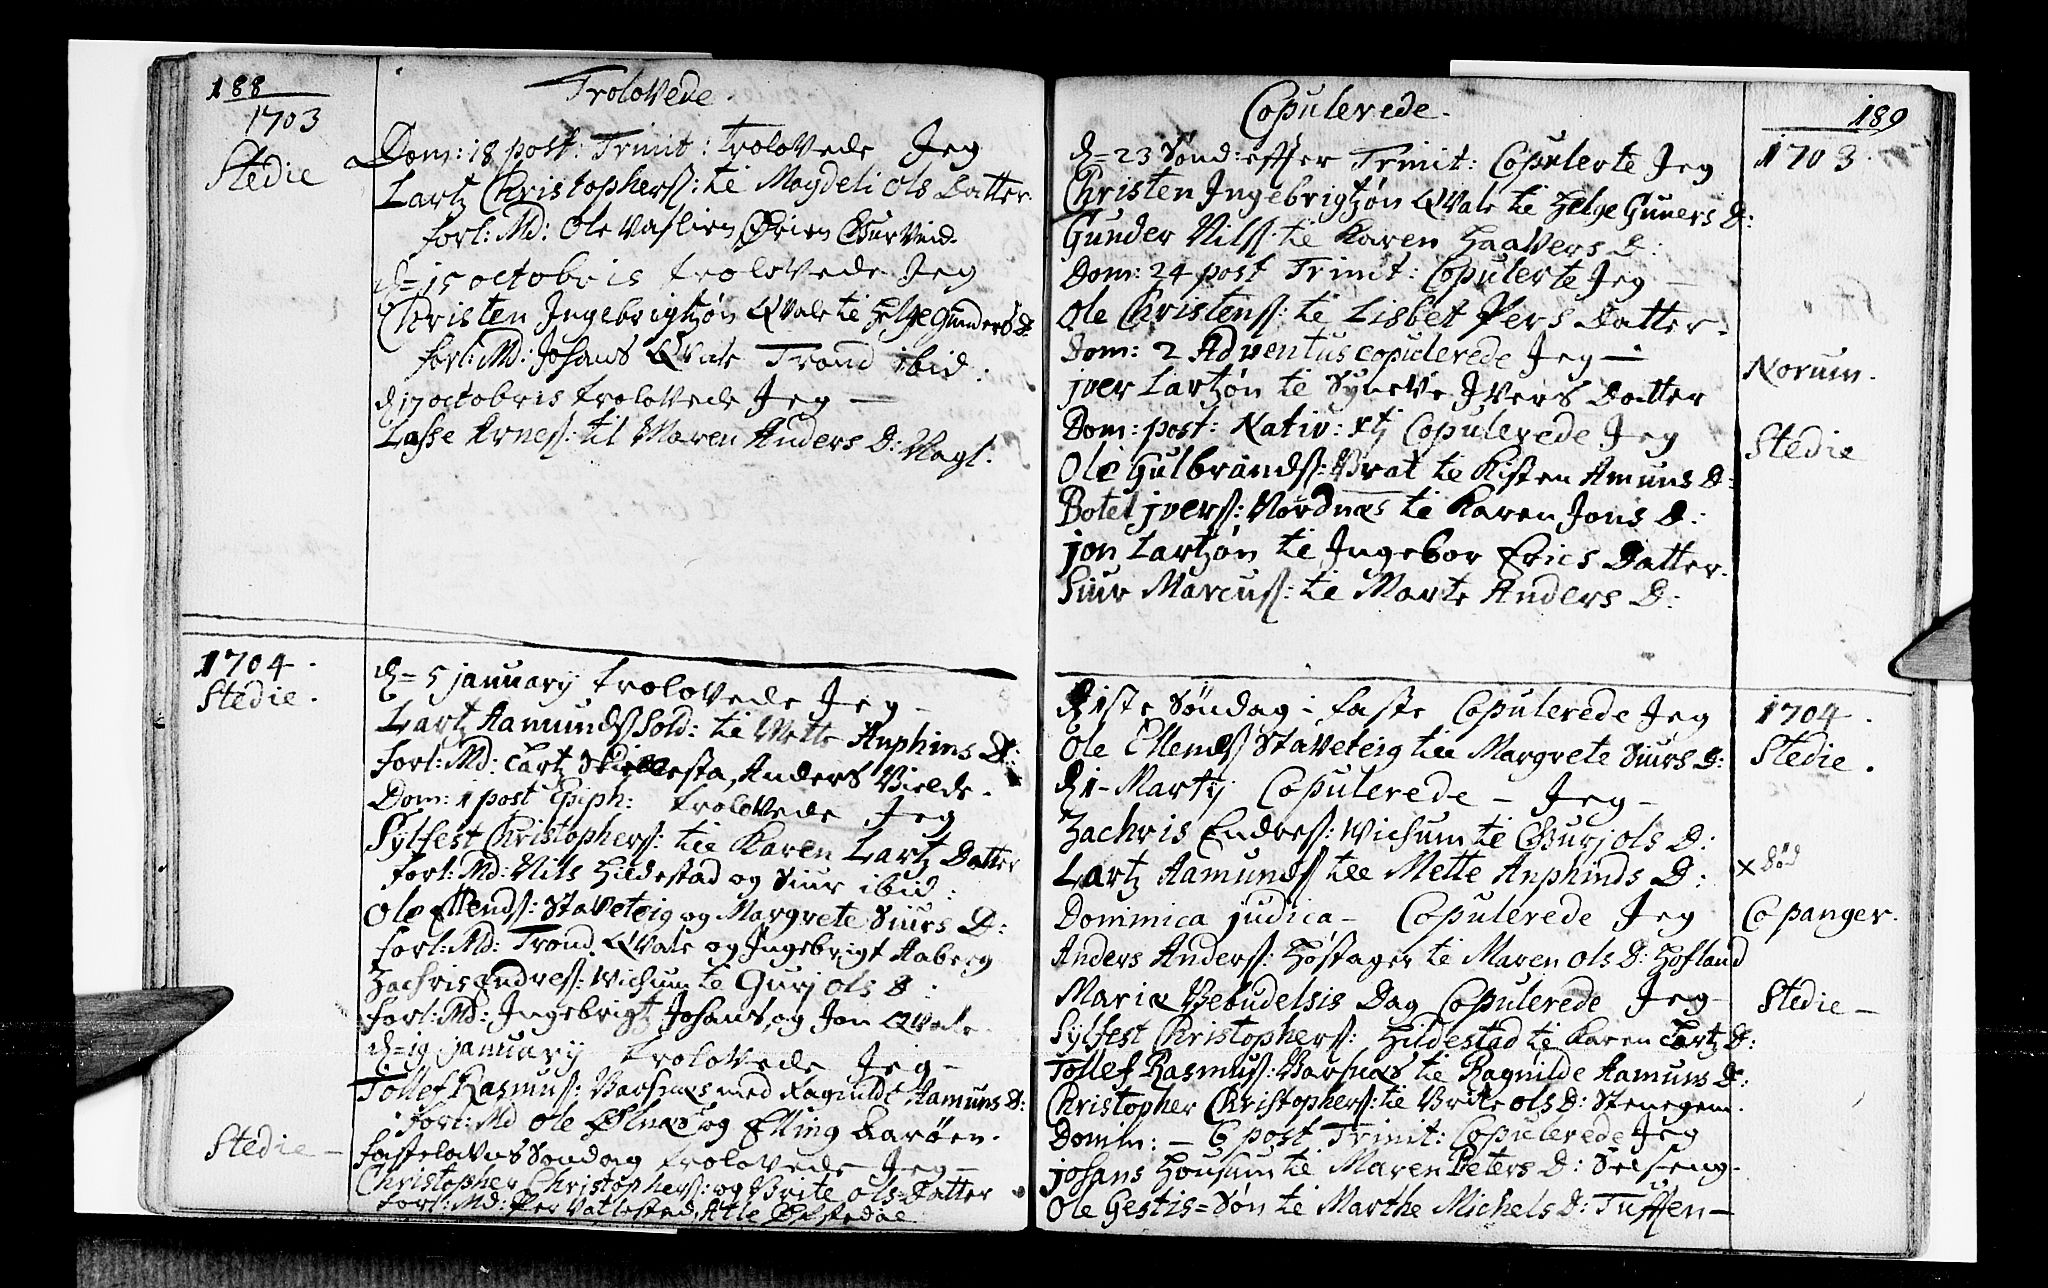 188
Trolovede.
1703
Stedie
Dom: 18 post: Trinit: trolovede Jeg
Lartz Christophers: til Magdeli Ols Datter.
forl: Md: Ole Ørien
d= 15 octobris trolovede Jeg
Christen Ingebrigtzøn Qvale til Helge Gunders D:
forl: Md: Johans Qvale Trond ibid:
d 17 octobris trolovede Jeg —
Lasse Arness: til Maren Anders D: Nagl.
1704.
Stedie.
d= 5 january trolovede Jeg —
Lartz Aamunds Sold: til Mette Anphins D:
forl: Md: Lartz Anders Bielde.
Dom: 1 post Epiph: trolovede Jeg
Sylfest Christophers: til Karen Lartz Datter
forl: Md: Nils Hildestad og Siur ibid:
Ole Ellends: Staveteig og Margrete Siurs D:
forl: Md: Trond Qvale og Ingebrigt Aaberg
Zachris Endres: Wichum til Gurj Ols D:
forl: Md: Ingebrigt Johans, og Jon Qvale.
d= 19 january trolovede Jeg —
Tollef Rasmus: Barsnæs med Ragnilde Aamuns D:
forl: Md Ole og Elling
Stedie —
fastelavns Sondag trolovede Jeg —
Christopher Christophers: og Brite Ols Datter
forl: Md: Per Vatlestad, Atle
Copulerede.
189
1703.
d= 23 Sond: effter Trinit: Copulerte Jeg
Christen Ingebrigtzøn Qvale til Helge Guners D:
Gunder Nils: til Karen Haavers D:
Dom: 24 post Trinit: Copulerte Jeg —
Ole Christens: til Lisbet Pers Datter.
Dom: 2 Adventus copulerede Jeg —
Norum.
jver Lartzøn til Syneve Jvers Datter
Dom: post: Nativ: Xtj Copulerede Jeg
Stedie
Ole Gulbrands: Brat til Kisten Amuns D:
Botel jvers: Nordnæs til Karen Jons D:
jon Lartzøn til Ingebor Erics Datter.
Siur Marcus: til Marte Anders D:
d 1ste Søndag i faste Copulerede Jeg
1704.
Ole Ellends Staveteig till Margrete Siurs D:
Stedie.
d 1 - Martij Copulerede — Jeg —
Zachris Endres: Wichum til Gurj Ols D:
Lartz Aamunds till Mette Anphinds D:
x Død
Dominica judica — Copulerede Jeg
Copanger.
Anders Anders: Høstager til Maren Ols D: Hofland
Mariæ Bebudelsis Dag Copulerede Jeg
Stedie —
Sylfest Christophers: Hildestad til Karen Lartz D:
Tollef Rasmus: Barsnæs til Ragnilde Aamuns D:
Christopher Christophers: til Brite Ols D: Stenegem.
Domin: — 6 post Trinit: Copulerede Jeg
johans Housum til Maren Peters D:
Ole Gestis=Søn til Marthe Michels D: Tufften —